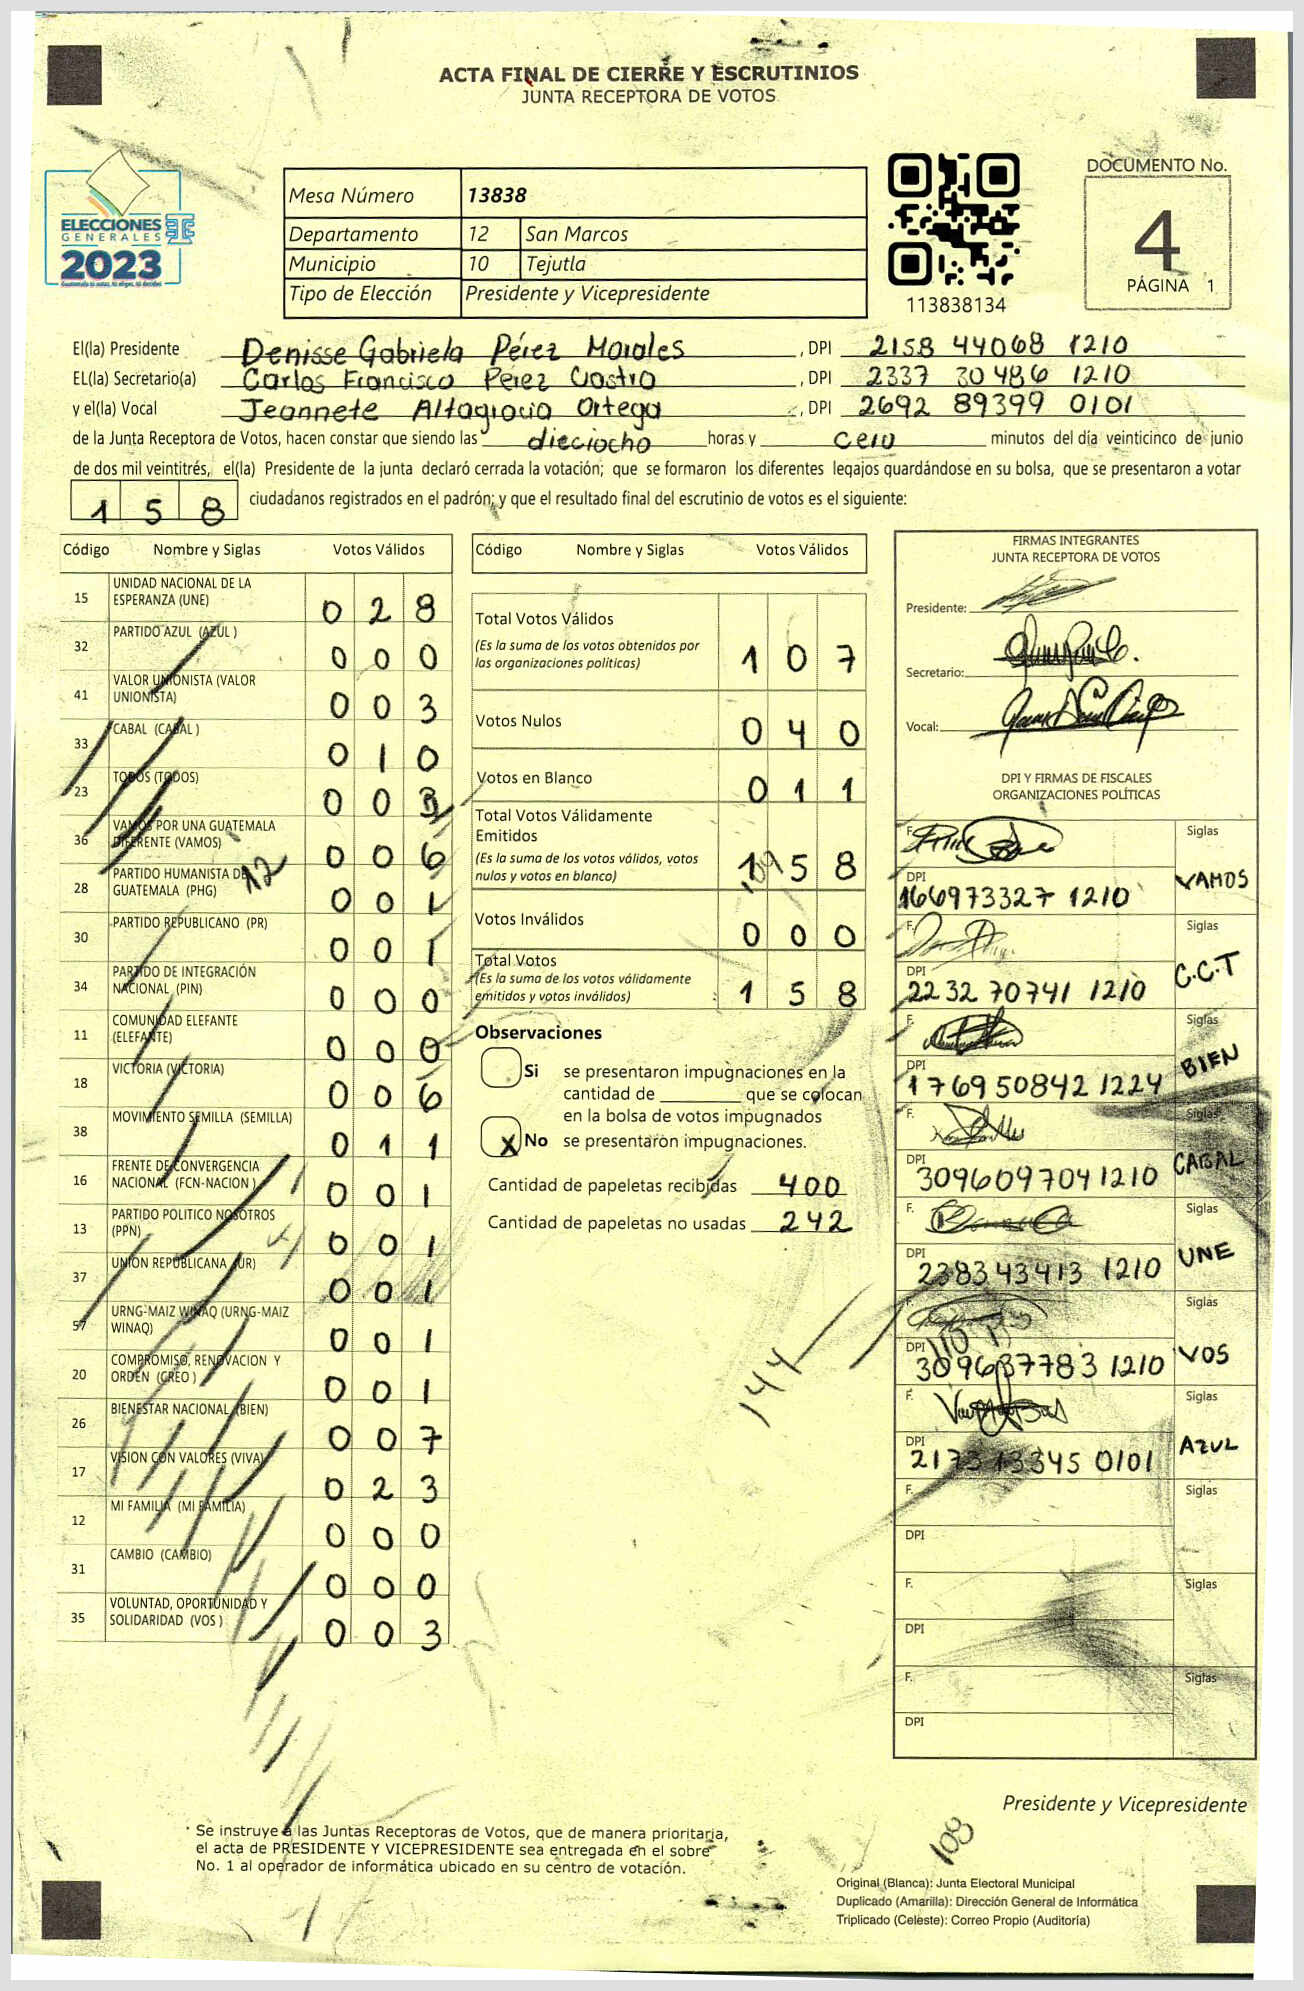 ACTA FINAL DE CIERRE Y ESCRUTINIOS
JUNTA RECEPTORA DE VOTOS
ELECCIONES
GENERALES
2023
Mesa Número 13838
Departamento 12 San Marcos
Municipio 10 Tejutla
Tipo de Elección Presidente y Vicepresidente
113838134
DOCUMENTO No.
4
PÁGINA 1
El(la) Presidente Denisse Gabriela Pérez Morales, DPI 2158 44068 1210
EL(la) Secretario(a) Carlos Francisco Pérez Castro, DPI 2337 30486 1210
y el(la) Vocal Jeannete Altagracia Ortega, DPI 2692 89399 0101
de la Junta Receptora de Votos, hacen constar que siendo las dieciocho horas y cero minutos del día veinticinco de junio
de dos mil veintitrés, el(la) Presidente de la junta declaró cerrada la votación; que se formaron los diferentes legajos guardándose en su bolsa, que se presentaron a votar
158 ciudadanos registrados en el padrón; y que el resultado final del escrutinio de votos es el siguiente:
Código Nombre y Siglas Votos Válidos
15 UNIDAD NACIONAL DE LA ESPERANZA (UNE) 0 2 8
32 PARTIDO AZUL (AZUL ) 0 0 0
41 VALOR UNIONISTA (VALOR UNIONISTA) 0 0 3
33 CABAL (CABAL ) 0 1 0
23 TODOS (TODOS) 0 0 3
36 VAMOS POR UNA GUATEMALA DIFERENTE (VAMOS) 0 0 6
28 PARTIDO HUMANISTA DE GUATEMALA (PHG) 0 0 1
12
30 PARTIDO REPUBLICANO (PR) 0 0 1
34 PARTIDO DE INTEGRACIÓN NACIONAL (PIN) 0 0 0
11 COMUNIDAD ELEFANTE (ELEFANTE) 0 0 0
18 VICTORIA (VICTORIA) 0 0 6
38 MOVIMIENTO SEMILLA (SEMILLA) 0 1 1
16 FRENTE DE CONVERGENCIA NACIONAL (FCN-NACION ) 0 0 1
13 PARTIDO POLITICO NOSOTROS (PPN) 0 0 1
37 UNION REPUBLICANA (UR) 0 0 1
57 URNG-MAIZ WINAQ (URNG-MAIZ WINAQ) 0 0 1
20 COMPROMISO, RENOVACION Y ORDEN (CREO ) 0 0 1
26 BIENESTAR NACIONAL (BIEN) 0 0 7
17 VISION CON VALORES (VIVA) 0 2 3
12 MI FAMILIA (MI FAMILIA) 0 0 0
31 CAMBIO (CAMBIO) 0 0 0
35 VOLUNTAD, OPORTUNIDAD Y SOLIDARIDAD (VOS ) 0 0 3
Código Nombre y Siglas Votos Válidos
Total Votos Válidos
(Es la suma de los votos obtenidos por
las organizaciones políticas) 1 0 7
Votos Nulos 0 4 0
Votos en Blanco 0 1 1
Total Votos Válidamente
Emitidos
(Es la suma de los votos válidos, votos
nulos y votos en blanco) 1 5 8
109
Votos Inválidos 0 0 0
Total Votos
(Es la suma de los votos válidamente
emitidos y votos inválidos) 1 5 8
Observaciones
Si se presentaron impugnaciones en la
cantidad de ________ que se colocan
en la bolsa de votos impugnados
X No se presentaron impugnaciones.
Cantidad de papeletas recibidas 400
Cantidad de papeletas no usadas 242
144
FIRMAS INTEGRANTES
JUNTA RECEPTORA DE VOTOS
Presidente:
Secretario:
Vocal:
DPI Y FIRMAS DE FISCALES
ORGANIZACIONES POLÍTICAS
F. Siglas
DPI 166973327 1210 VAMOS
F. Siglas
DPI 2232 70741 1210 C.C.T
F. Siglas
DPI 176950842 1224 BIEN
F. Siglas
DPI 309609704 1210 CABAL
F. Siglas
DPI 238343413 1210 UNE
F. Siglas
110
DPI 309637783 1210 VOS
F. Siglas
DPI 2173 13345 0101 AZUL
F. Siglas
DPI
F. Siglas
DPI
F. Siglas
DPI
Presidente y Vicepresidente
108
Se instruye a las Juntas Receptoras de Votos, que de manera prioritaria,
el acta de PRESIDENTE Y VICEPRESIDENTE sea entregada en el sobre
No. 1 al operador de informática ubicado en su centro de votación.
Original (Blanca): Junta Electoral Municipal
Duplicado (Amarilla): Dirección General de Informática
Triplicado (Celeste): Correo Propio (Auditoría)